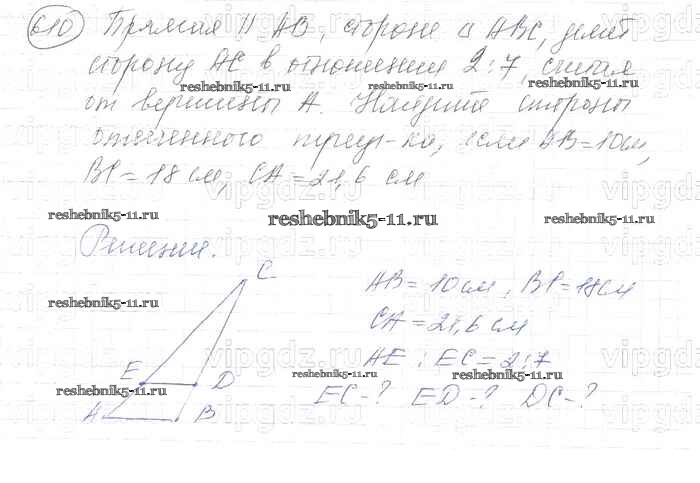 610 Прямая || AB, стороне △ ABC, делит
сторону AC в отношении 2:7, считая
reshebnik5-11.ru reshebnik5-11.ru
от вершины A. Найдите стороны
отсеченного треуг-ка, если AB=10см,
BC=18 см, CA=21,6 см
reshebnik5-11.ru reshebnik5-11.ru reshebnik5-11.ru
Решение.
C
AB=10см, BC=18см
reshebnik5-11.ru
CA=21,6 см
AE:EC=2:7
E D
reshebnik5-11.ru reshebnik5-11.ru reshebnik5-11.ru
EC-? ED-? DC-?
A B
vipgdz.ru